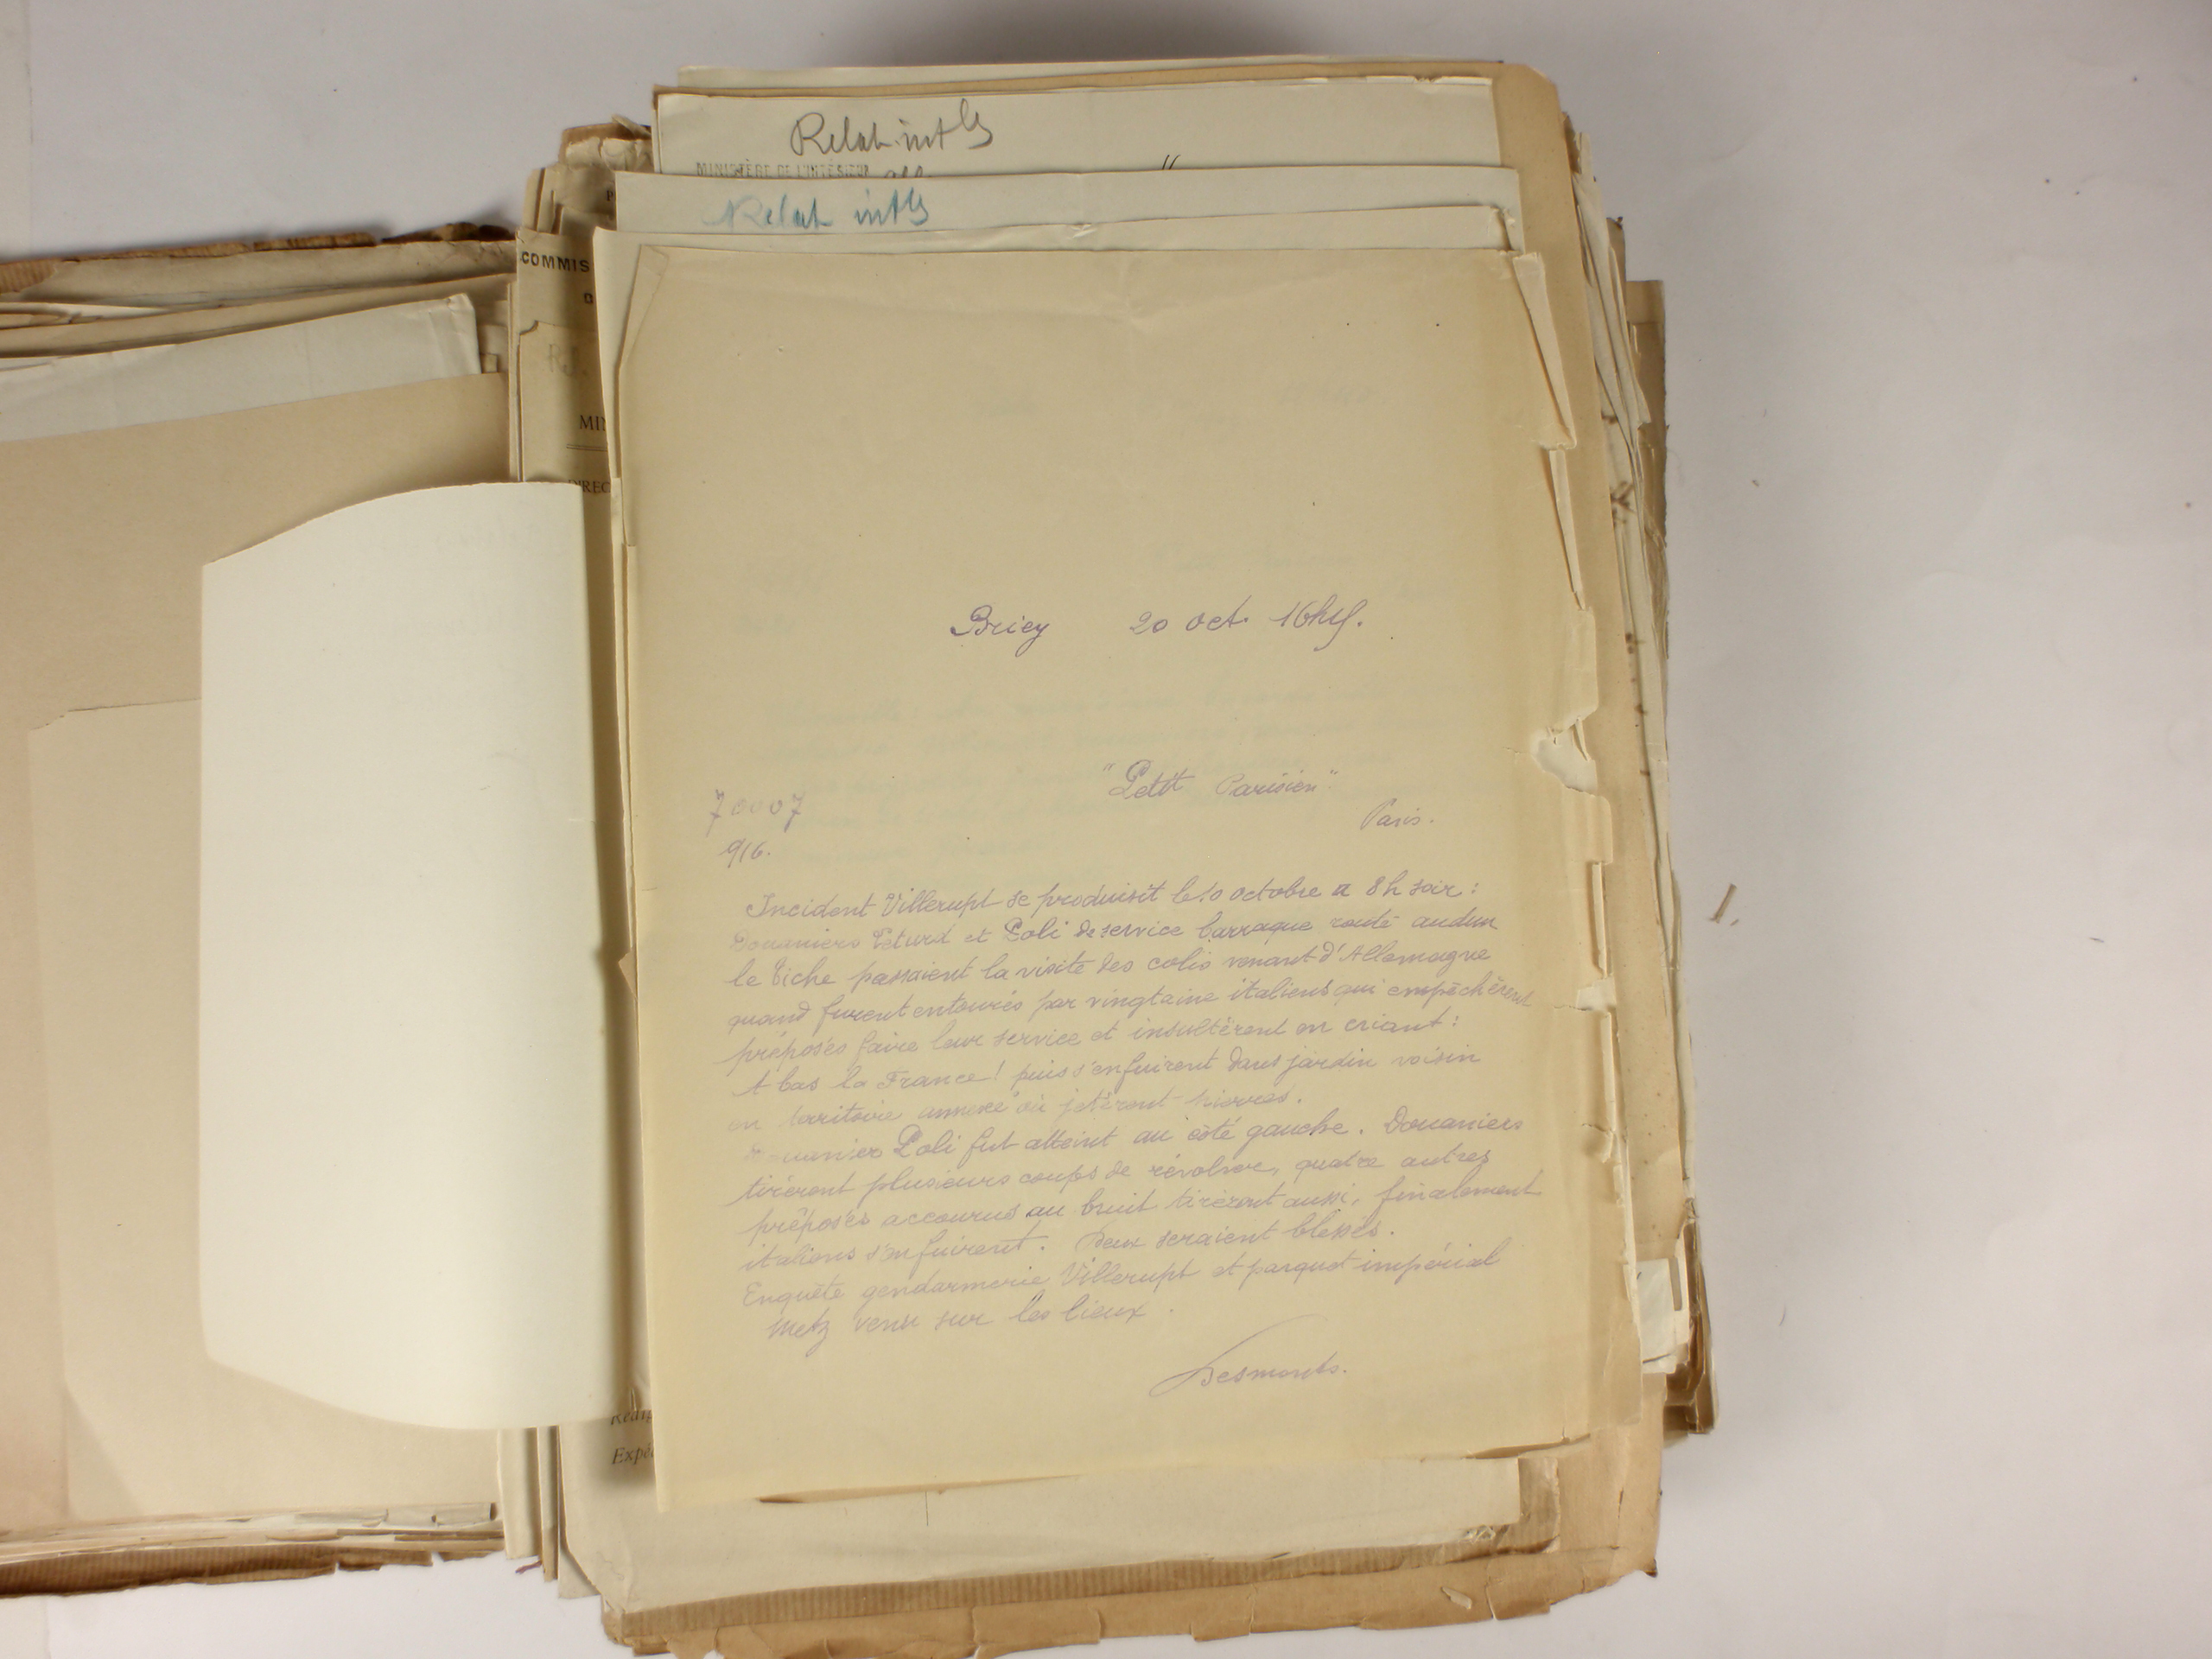 Relat. intles
MINISTÈRE DE L'INTÉRIEUR
Relat intles
COMMIS
MIN
DIREC
Briey 20 oct. 16h
"Petit Parisien"
Paris.
70007
916.
Incident Villerupt se produisit le 10 octobre a 8h soir :
Douaniers et Poli de service barraque route audun
le Tiche passaient la visite des colis venant d'Allemagne
quand furent entourés par vingtaine italiens qui empêchèrent
préposés faire leur service et insultèrent en criant :
A bas la France ! puis s'enfuirent dans jardin voisin
en territoire annexé où jetèrent pierres.
Douanier Poli fut atteint au côté gauche. Douaniers
tirèrent plusieurs coups de révolver, quatre autres
préposés accourus au bruit tirèrent aussi, finalement
italiens s'enfuirent. Deux seraient blessés.
Enquête gendarmerie Villerupt et parquet impérial
Metz venu sur les lieux.
Desmonts.
Rédig
Expé